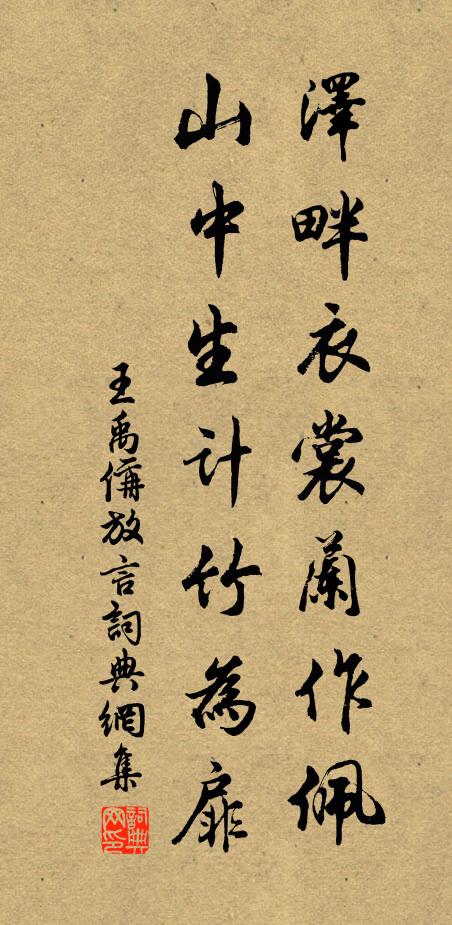 澤畔衣裳蘭作佩
山中生計竹為扉
王禹偁放言詞典網集
詞典網印